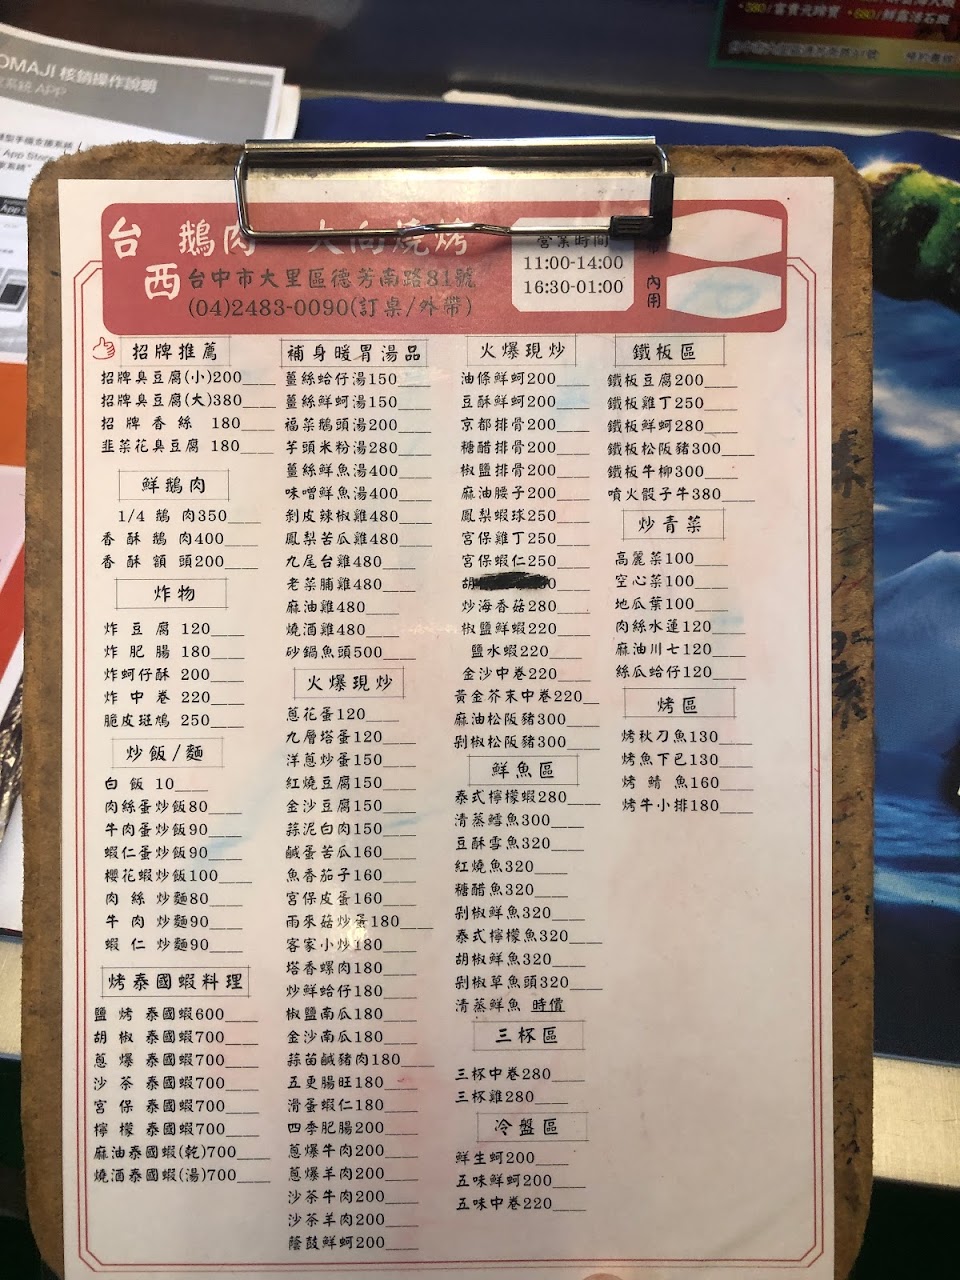 OMAJI 核銷操作說明
系統 APP
App Store
台 鵝肉 大向燒烤
西
台中市大里區德芳南路81號
(04)2483-0090(訂桌/外帶)
營業時間
11:00-14:00
16:30-01:00
內用
招牌推薦
招牌臭豆腐(小)200
招牌臭豆腐(大)380
招牌香絲 180
韭菜花臭豆腐 180
鮮鵝肉
1/4 鵝肉350
香酥鵝肉400
香酥頷頭200
炸物
炸豆腐 120
炸肥腸 180
炸蚵仔酥 200
炸中卷 220
脆皮斑鳩 250
炒飯/麵
白飯 10
肉絲蛋炒飯80
牛肉蛋炒飯90
蝦仁蛋炒飯90
櫻花蝦炒飯100
肉絲炒麵80
牛肉炒麵90
蝦仁炒麵90
烤泰國蝦料理
鹽烤泰國蝦600
胡椒泰國蝦700
蔥爆泰國蝦700
沙茶泰國蝦700
宮保泰國蝦700
檸檬泰國蝦700
麻油泰國蝦(乾)700
燒酒泰國蝦(湯)700
補身暖胃湯品
薑絲蛤仔湯150
薑絲鮮蚵湯150
福菜鵝頭湯200
芋頭米粉湯280
薑絲鮮魚湯400
味噌鮮魚湯400
剝皮辣椒雞480
鳳梨苦瓜雞480
九尾台雞480
老菜脯雞480
麻油雞480
燒酒雞480
砂鍋魚頭500
火爆現炒
蔥花蛋120
九層塔蛋120
洋蔥炒蛋150
紅燒豆腐150
金沙豆腐150
蒜泥白肉150
鹹蛋苦瓜160
魚香茄子160
宮保皮蛋160
雨來菇炒蛋180
客家小炒180
塔香螺肉180
炒鮮蛤仔180
椒鹽南瓜180
金沙南瓜180
蒜苗鹹豬肉180
五更腸旺180
滑蛋蝦仁180
四季肥腸200
蔥爆牛肉200
蔥爆羊肉200
沙茶牛肉200
沙茶羊肉200
蔭鼓鮮蚵200
火爆現炒
油條鮮蚵200
豆酥鮮蚵200
京都排骨200
糖醋排骨200
椒鹽排骨200
麻油腰子200
鳳梨蝦球250
宮保雞丁250
宮保蝦仁250
胡
炒海香菇280
椒鹽鮮蝦220
鹽水蝦220
金沙中卷220
黃金芥末中卷220
麻油松阪豬300
剁椒松阪豬300
鮮魚區
泰式檸檬蝦280
清蒸鱈魚300
豆酥雪魚320
紅燒魚320
糖醋魚320
剁椒鮮魚320
泰式檸檬魚320
胡椒鮮魚320
剁椒草魚頭320
清蒸鮮魚 時價
三杯區
三杯中卷280
三杯雞280
冷盤區
鮮生蚵200
五味鮮蚵200
五味中卷220
鐵板區
鐵板豆腐200
鐵板雞丁250
鐵板鮮蚵280
鐵板松阪豬300
鐵板牛柳300
噴火骰子牛380
炒青菜
高麗菜100
空心菜100
地瓜葉100
肉絲水蓮120
麻油川七120
絲瓜蛤仔120
烤區
烤秋刀魚130
烤魚下巴130
烤鯖魚160
烤牛小排180